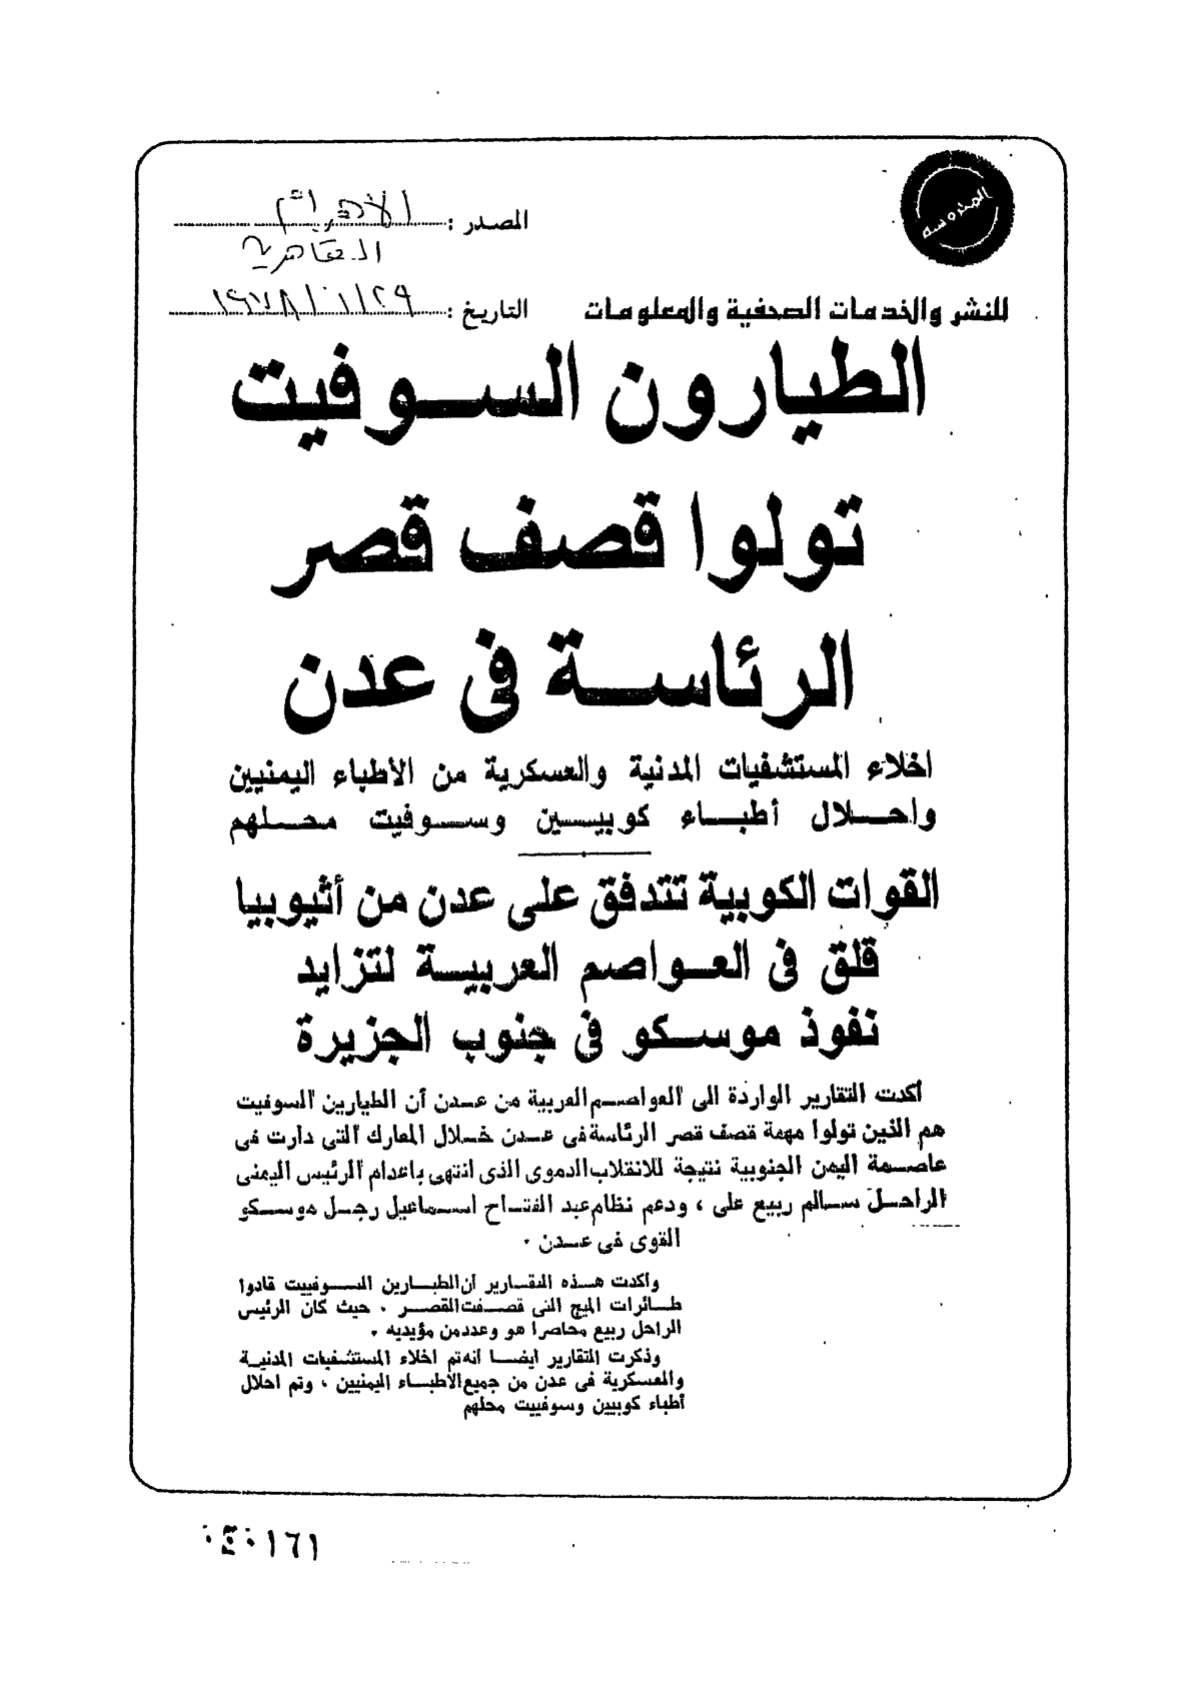 المحروسة
المصدر : الأهرام
القاهرية
للنشر والخدمات الصحفية والمعلومات
التاريخ :
الطيارون السـوفيت
تولوا قصف قصر
الرئاسـة فى عدن
اخلاء المستشفيات المدنية والعسكرية من الأطباء اليمنيين
واحـلال أطبـاء كوبيـين وسـوفيت محـلهم
القوات الكوبية تتدفق على عدن من أثيوبيا
قلق فى العـواصم العربيـة لتزايد
نفوذ موسـكو فى جنوب الجزيرة
أكدت التقارير الواردة الى العواصم العربية من عـدن أن الطيارين السوفيت
هم الذين تولوا مهمة قصف قصر الرئاسة فى عدن خـلال المعارك التى دارت فى
عاصـمة اليمن الجنوبية نتيجة للانقلاب الدموى الذى انتهى باعدام الرئيس اليمنى
الراحـل سـالم ربيع على ، ودعم نظام عبد الفتـاح اسـماعيل رجـل موسـكو
القوى فى عـدن .
وأكدت هـذه التقـارير أن الطيـارين السـوفييت قادوا
طـائرات الميج التى قصـفت القصـر . حيث كان الرئيس
الراحل ربيع محاصرا هو وعدد من مؤيديه .
وذكرت التقارير أيضـا أنه تم اخلاء المستشفيات المدنيـة
والعسكرية فى عدن من جميع الأطبـاء اليمنيين ، وتم احلال
أطباء كوبيين وسوفييت محلهم